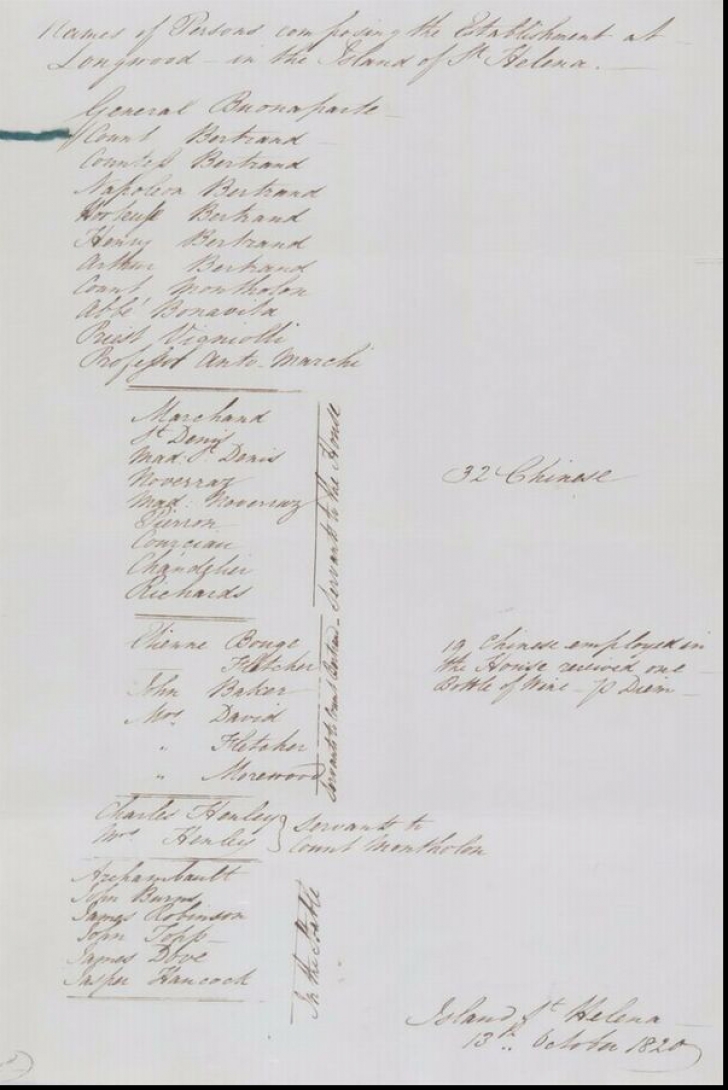 Names of Persons composing the Establishment at
Longwood - in the Island of St Helena.
General Buonaparte
Count Bertrand
Countess Bertrand
Napoleon Bertrand
Hortense Bertrand
Henry Bertrand
Arthur Bertrand
Count Montholon
Abbé Bonavita
Priest Vigniolli
Professor Anto-Marchi
Marchand
St Denis
Mad. St Denis
Noverraz
Mad. Noverraz
Pierron
Courciau
Chandelier
Richards
Servants to the House
32 Chinese
Etienne Bouge
Fletcher
John Baker
Mrs David
" Fletcher
" Morewood
Servants to Count Bertrand
19 Chinese employed in
the House received one
Bottle of Wine - p Diem
Charles Henley
Mrs Henley
Servants to
Count Montholon
Archambault
John Burns
James Robinson
John Topp
James Dove
Jasper Hancock
In the Stable
Island St Helena
13th October 1820